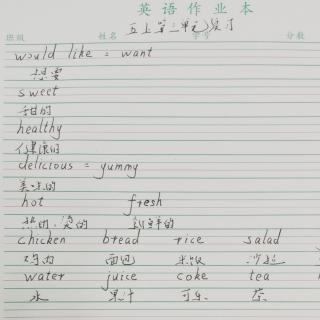 英语作业本
五上第三单元复习
班级 姓名 学号 分数
would like = want
想要
sweet
甜的
healthy
健康的
delicious = yummy
美味的
hot fresh
热的、烫的 新鲜的
chicken bread rice salad
鸡肉 面包 米饭 沙拉
water juice coke tea
水 果汁 可乐 茶